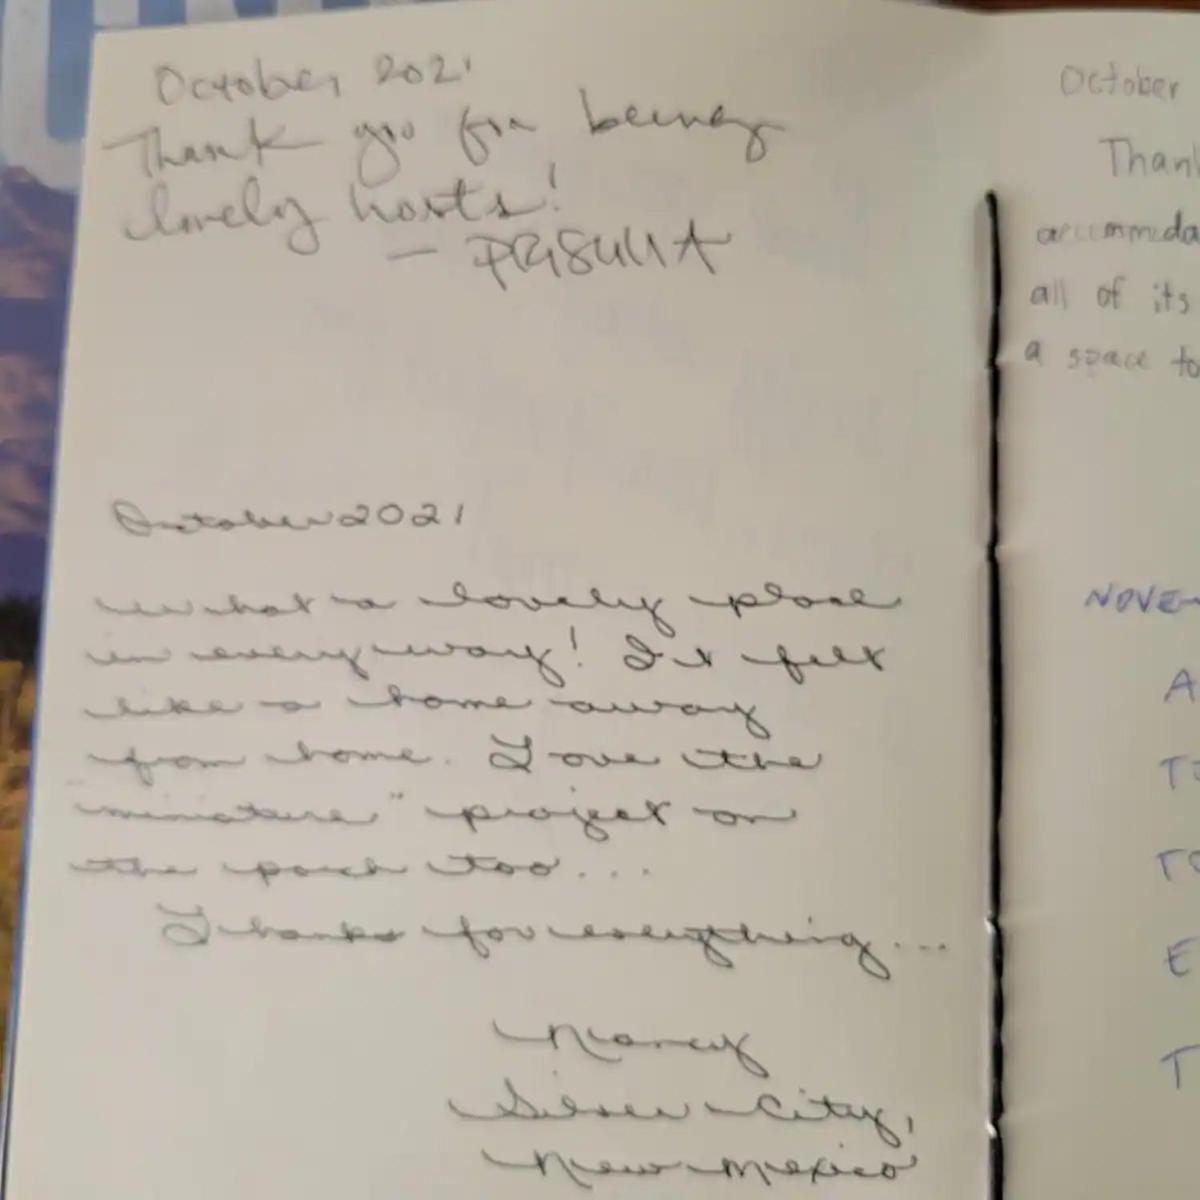 October 2021
Thank you for being
lovely hosts!
- PRISCILLA
October 2021
What a lovely place
in every way! It felt
like a home away
from home. Love the
"miniature" project on
the porch too...
Thanks for everything...
Nancy
Silver City,
New Mexico
October
Thank
accommoda
all of its
a space to
NOVEM
A
TO
TO
E
T